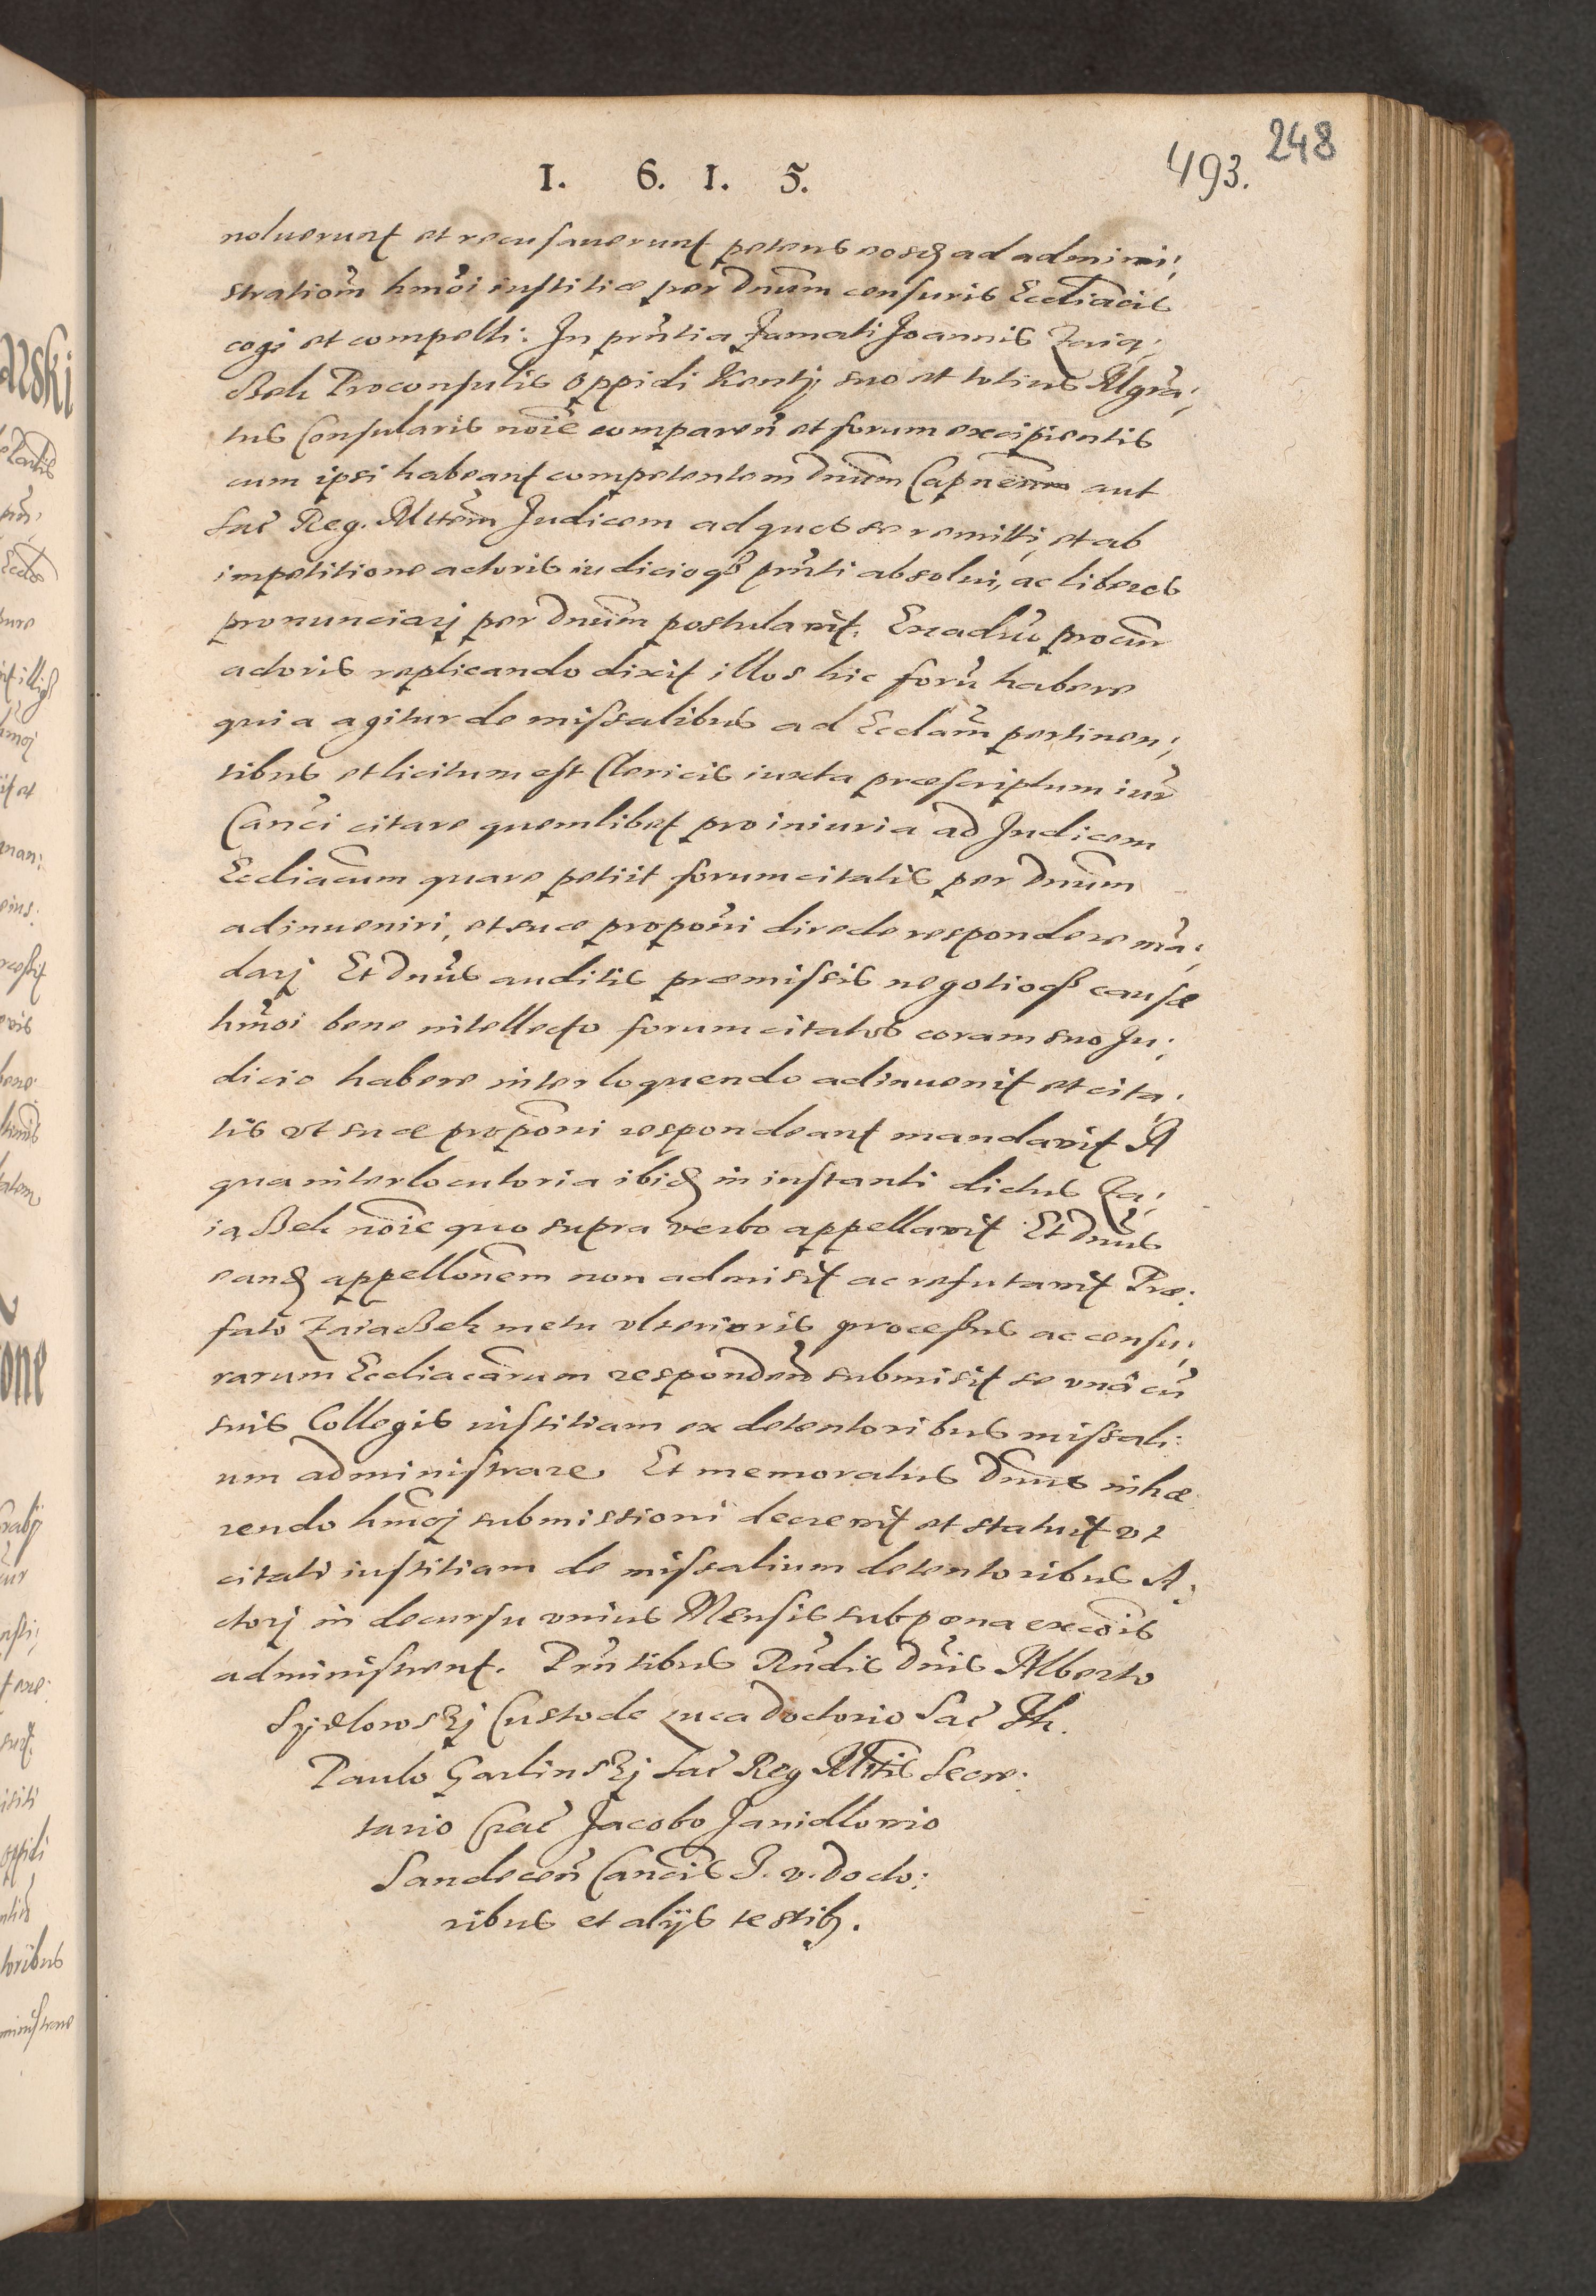 248
493.
1. 6. 1. 5.
noluerunt et recusauerunt petens eosdem ad admini;
stratiom̃ hm̃oi iustitiæ per Dnũm censuris Eccl̃iacis
cogi et compelli: In prñtia famati Joannis Zaią;
czek Proconsulis oppidi Kenty suo et totius Mgrã;
tus Consularis noĩe compareñ et forum excipientis
cum ipsi habeant competentem Dnũm Capñeum aut
Sac̃ Reg. Mttem̃ Judicem ad quos se remitti, et ab
impetitione actoris iudicioq3 prñti absolui, ac liberos
pronunciarj per Dnũm postulauit. Ex aduẽ procũr
actoris replicando dixit illos hic forũ habere
quia agitur de missalibus ad Eccl̃am pertinen;
tibus et licitum est Clericis iuxta præscriptum iur̃
Canc̃i citare quemlibet pro iniuria ad Judicem
Eccl̃iacum quare petiit forum citatis per Dnũm
adinueniri, et suæ propoñi directe respondere mã;
darj Et Dnũs auditis præmissis negotioq3 causæ
hm̃oi bene intellecto forum citatos coram suo Ju;
dicio habere interloquendo adinuenit et cita;
tis vt suæ propoñi respondeant mandauit A
qua interlocutoria ibidem in instanti dictus Za;
iączek noĩe quo supra verbo appellauit Et Dnũs
eandem appellõnem non admisit ac refutauit Præ;
fato Zaiaczek metu vlterioris processus ac censu;
rarum Eccl̃iacarum respondeñ submisit se vnâ cũ
suis Collegis iustitiam ex detentoribus missali;
um administrare. Et memoratus Dnũs inhæ
rendo hm̃oj submissioni decreuit et statuit vt
citati iustitiam de missalium detentoribus A;
ctorj in decursu vnius Mensis sub pœna excõis
administrent. Prñtibus Rñdis Dñis Alberto
Szydlowskj Custode Luca Doctorio Sac̃ Th.
Paulo Garlinskj Sac̃ Reg Mttis Secre:
tario Crac̃ Jacobo Janidllouio
Sandeceñ Cañcis J. v. Docto:
ribus et alijs testib3.